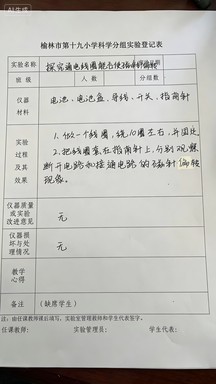 AI生成
榆林市第十九小学科学分组实验登记表
实验名称 探究通电线圈能否使指南针偏转
班级 人数 分组数
仪器材料 电池、电池盒、导线、开关、指南针
实验过程及其效果 1. 做一个线圈,绕10圈左右,并固定
2. 把线圈套在指南针上,分别观察
断开电路和接通电路的磁针偏转
现象。
仪器质量或实验改进意见 无
仪器损坏与处理情况 无
教学心得
备注 (缺席学生)
注:由任课教师课后填写,实验室管理教师和学生代表签字。
任课教师: 实验管理员: 学生代表: